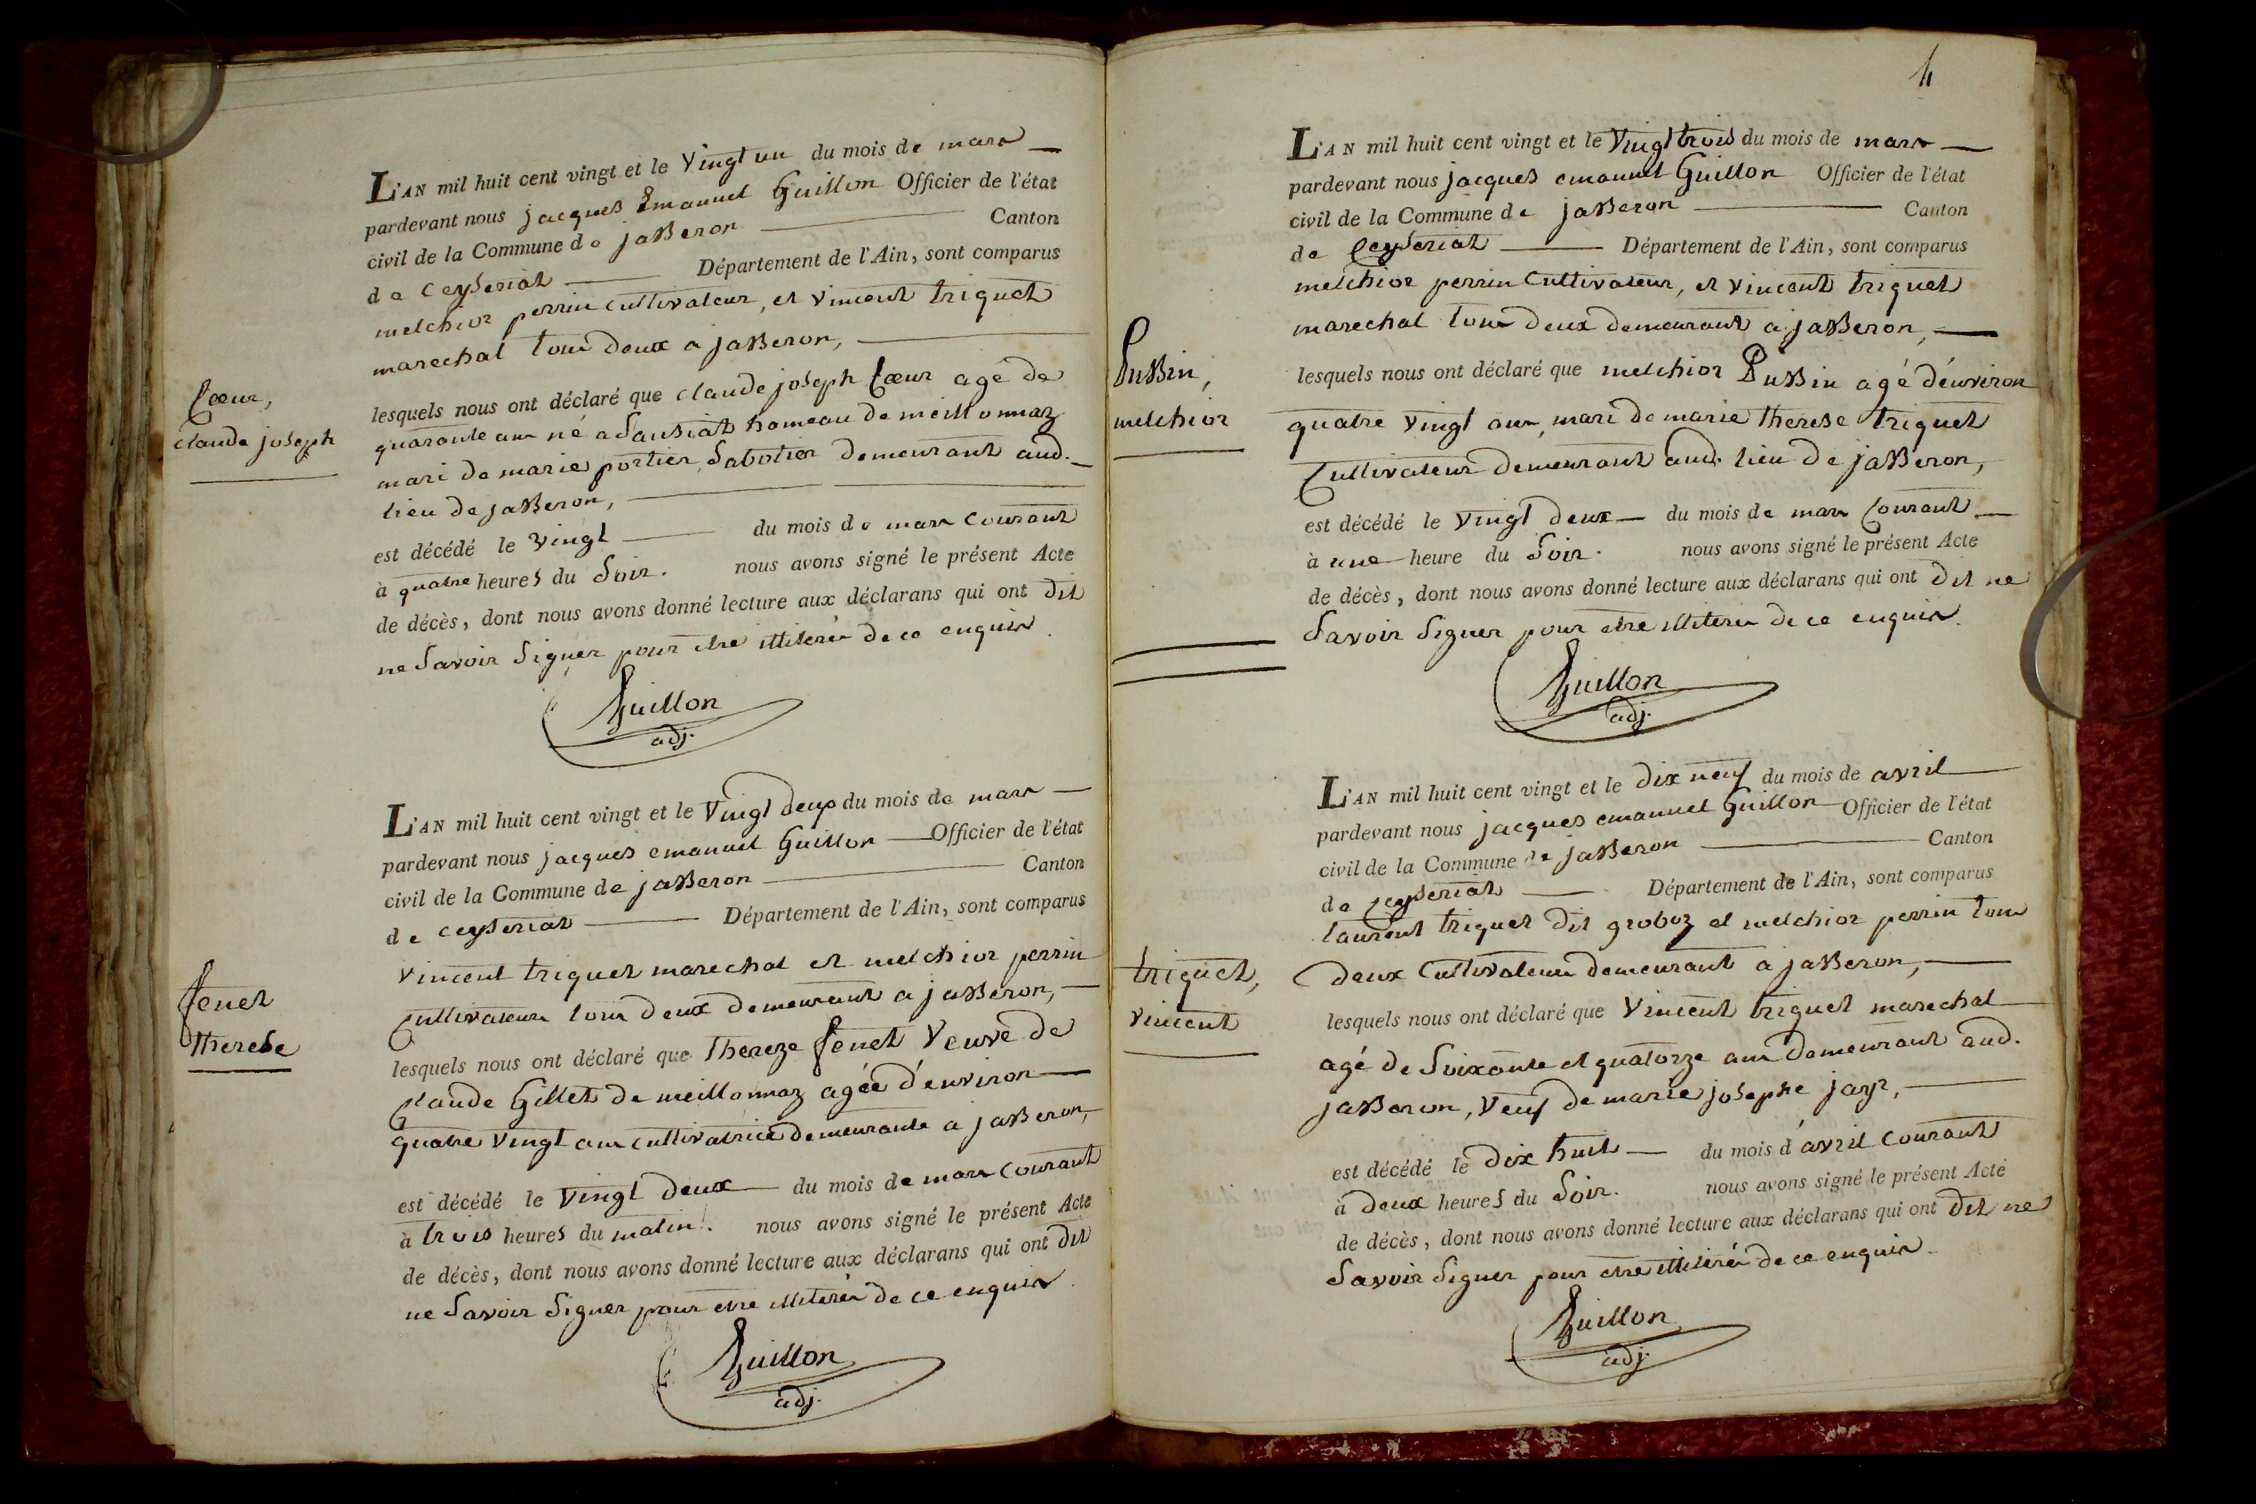 L'AN mil huit cent vingt et le vingt un du mois de mars
pardevant nous jacques Emanuel Guillon Officier de l'état
civil de la Commune de jasseron Canton
de ceyseriat Département de l'Ain, sont comparus
melchior perrin cultivateur, et vincent triquet
marechal tous deux a jasseron,
Cœur,
claude joseph
lesquels nous ont déclaré que claude joseph Cœur agé de
quarante ans né a Sansiat hameau de meillonnaz
mari de marie portier, Sabotier demeurant aud.
lieu de jasseron,
est décédé le vingt du mois de mars courant
à quatre heures du Soir. nous avons signé le présent Acte
de décès, dont nous avons donné lecture aux déclarans qui ont dit
ne Savoir Signer pour etre illiterés de ce enquis.
Guillon
adj.
L'AN mil huit cent vingt et le vingt deux du mois de mars
pardevant nous jacques emanuel Guillon Officier de l'état
civil de la Commune de jasseron Canton
de ceyseriat Département de l'Ain, sont comparus
vincent triquet marechal et melchior perrin
Cultivateurs tous deux demeurant a jasseron,
fenet
therese
lesquels nous ont déclaré que thereze fenet Veuve de
Claude Gillet de meillonnaz agée d'environ
quatre vingt ans cultivatrice demeurante a jasseron,
est décédé le vingt deux du mois de mars courant
à trois heures du matin. nous avons signé le présent Acte
de décès, dont nous avons donné lecture aux déclarans qui ont dit
ne Savoir Signer pour etre illiterés de ce enquis.
Guillon
adj.
4
L'AN mil huit cent vingt et le vingt trois du mois de mars
pardevant nous jacques emanuel Guillon Officier de l'état
civil de la Commune de jasseron Canton
de Ceyseriat Département de l'Ain, sont comparus
melchior perrin Cultivateur, et vincent triquet
marechal tous deux demeurant a jasseron,
Pussin,
melchior
lesquels nous ont déclaré que melchior Pussin agé d'environ
quatre vingt ans, mari de marie therese triquet
Cultivateur demeurant aud. lieu de jasseron,
est décédé le vingt deux du mois de mars Courant
à une heure du Soir. nous avons signé le présent Acte
de décès, dont nous avons donné lecture aux déclarans qui ont dit ne
Savoir Signer pour etre illiterés de ce enquis.
Guillon
adj.
L'AN mil huit cent vingt et le dix neuf du mois de avril
pardevant nous jacques emanuel Guillon Officier de l'état
civil de la Commune de jasseron Canton
de ceyseriat Département de l'Ain, sont comparus
laurent triquet dit groboz et melchior perrin tous
deux Cultivateurs demeurant a jasseron,
triquet,
vincent
lesquels nous ont déclaré que Vincent triquet marechal
agé de Soixante et quatorze ans demeurant aud.
jasseron, Veuf de marie josephe jayr,
est décédé le dix huit du mois d'avril courant
à deux heures du Soir. nous avons signé le présent Acte
de décès, dont nous avons donné lecture aux déclarans qui ont dit ne
Savoir Signer pour etre illiterés de ce enquis.
Guillon
adj.